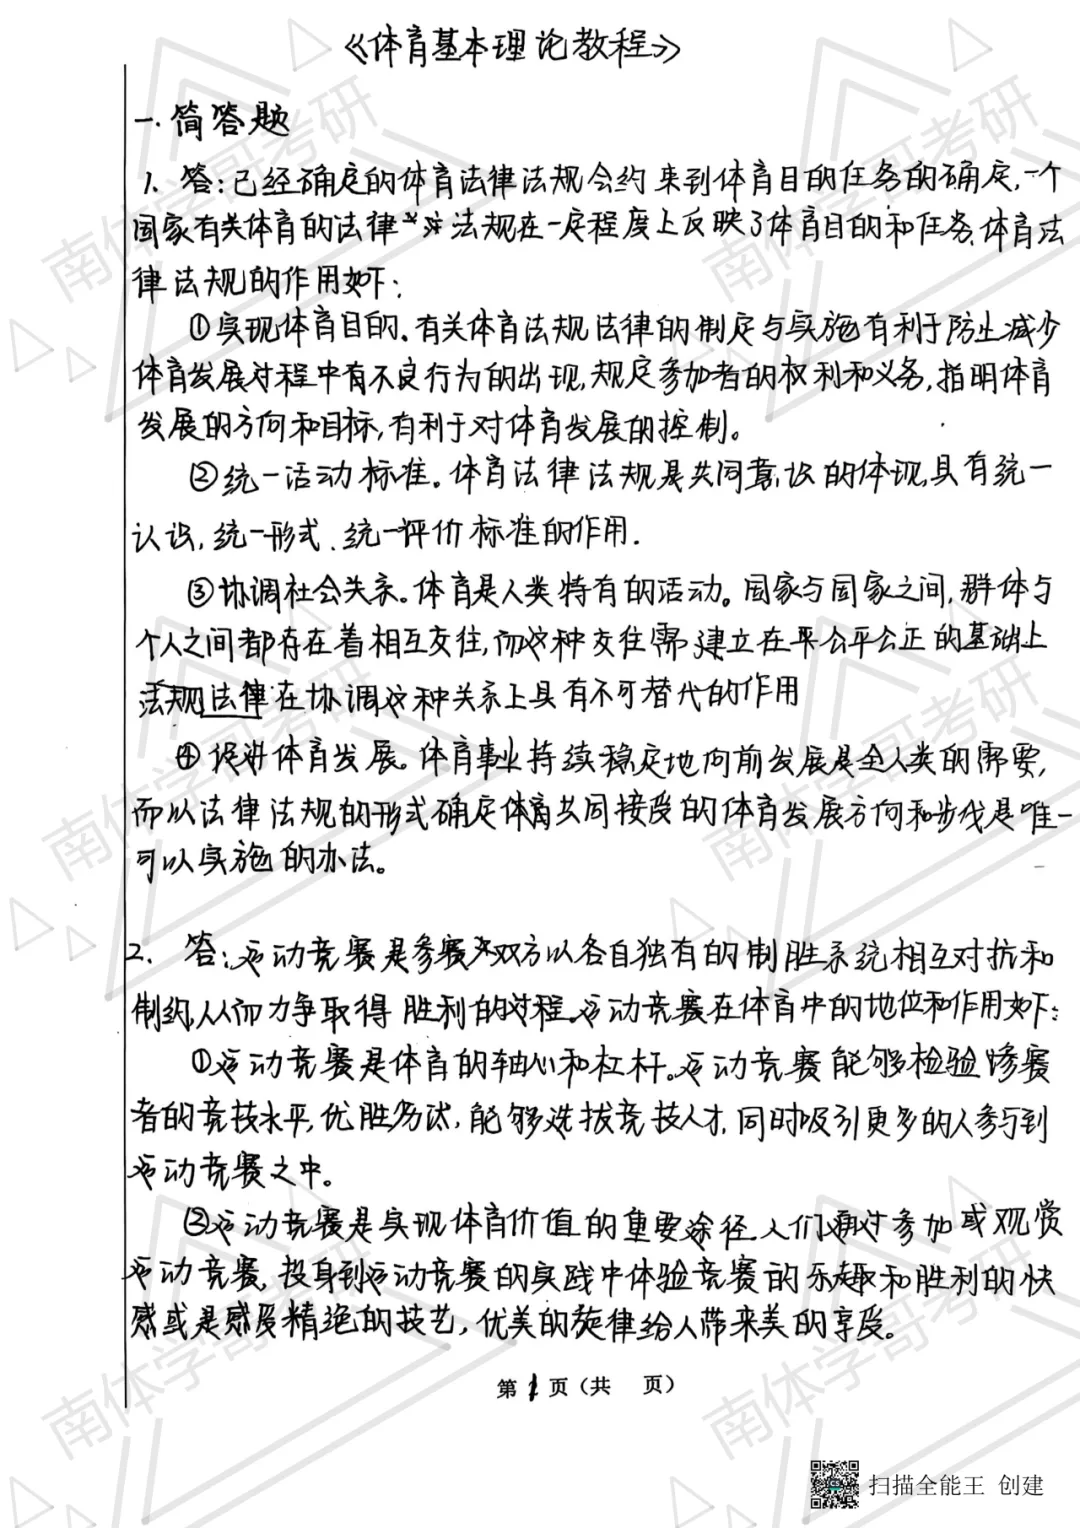 《体育基本理论教程》
一.简答题
1、答:已经确定的体育法律法规会约束到体育目的任务的确定,一个
国家有关体育的法律法规在一定程度上反映了体育目的和任务.体育法
律法规的作用如下:
①实现体育目的.有关体育法规法律的制定与实施有利于防止减少
体育发展过程中有不良行为的出现,规定参加者的权利和义务,指明体育
发展的方向和目标,有利于对体育发展的控制。
②统一活动标准。体育法律法规是共同意识的体现,具有统一
认识,统一形式、统一评价标准的作用.
③协调社会关系。体育是人类特有的活动。国家与国家之间,群体与
个人之间都存在着相互交往,而这种交往需建立在平公平公正的基础上
法规法律在协调这种关系上具有不可替代的作用
④促进体育发展。体育事业持续稳定地向前发展是全人类的需要,
而以法律法规的形式确定体育共同接受的体育发展方向和步伐是唯一
可以实施的办法。
2、答:运动竞赛是参赛双方以各自独有的制胜系统相互对抗和
制约,从而力争取得胜利的过程。运动竞赛在体育中的地位和作用如下:
①运动竞赛是体育的轴心和杠杆。运动竞赛能够检验参赛
者的竞技水平,优胜劣汰,能够选拔竞技人才,同时吸引更多的人参与到
运动竞赛之中。
②运动竞赛是实现体育价值的重要途径.人们通过参加或观赏
运动竞赛,投身到运动竞赛的实践中体验竞赛的乐趣和胜利的快
感或是感受精绝的技艺,优美的旋律给人带来美的享受。
第1页(共 页)
扫描全能王 创建
南体学哥考研
南体学哥考研
南体学哥考研
南体学哥考研
南体学哥考研
南体学哥考研